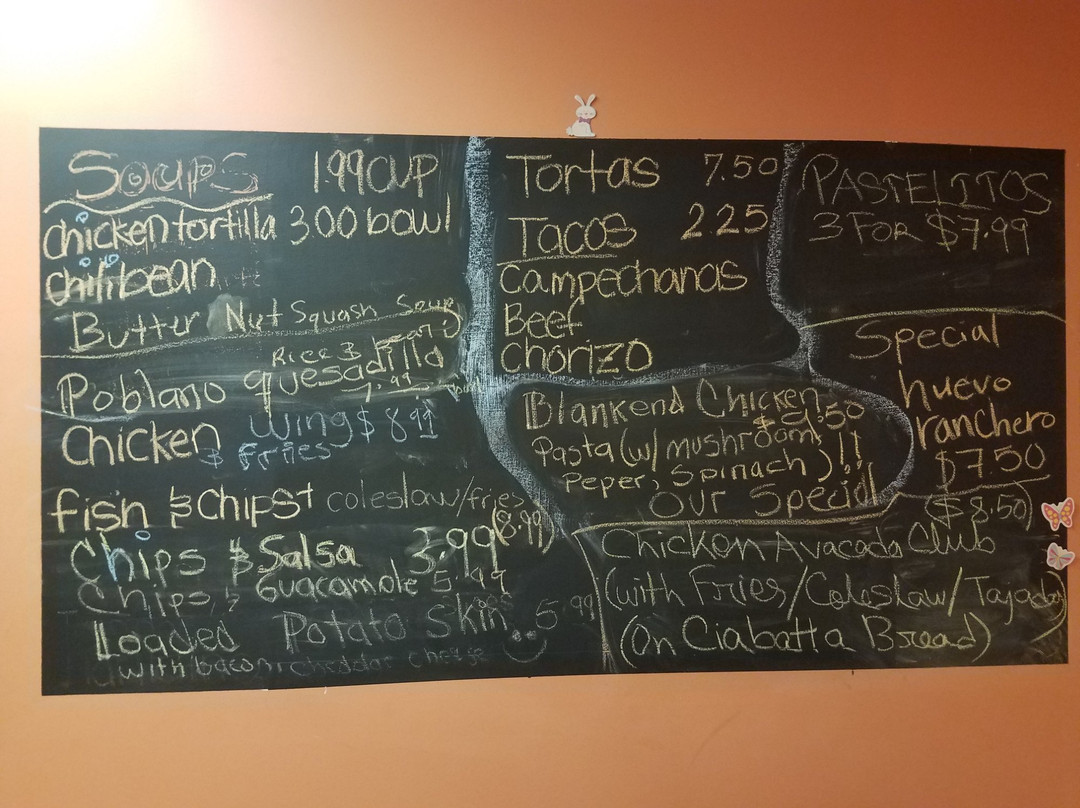 Soups 1.99 cup
chicken tortilla 3.00 bowl
chili bean
Butter Nut Squash Soup
Rice &
Poblano quesadilla
7.99
Chicken Wing $ 8.99
& Fries
fish & chips coleslaw/fries
(8.99)
Chips & Salsa 3.99
Chips & Guacamole 5.99
Loaded Potato Skins 5.99
with bacon cheddar cheese
Tortas 7.50
Tacos 2.25
Campechanas
Beef
Chorizo
Blankend Chicken
Pasta (w/ mushroom,
Peper, Spinach) !!
Our Special
PASTELITOS
3 FOR $7.99
Special
huevo
ranchero
$7.50
($8.50)
Chicken Avacado Club
(with Fries/Coleslaw/Tajada)
(On Ciabatta Bread)